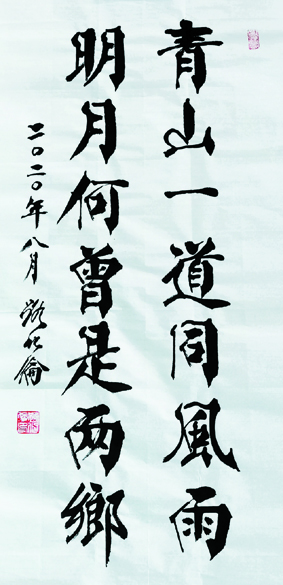 青山一道同風雨
明月何曾是兩鄉
二〇二〇年八月